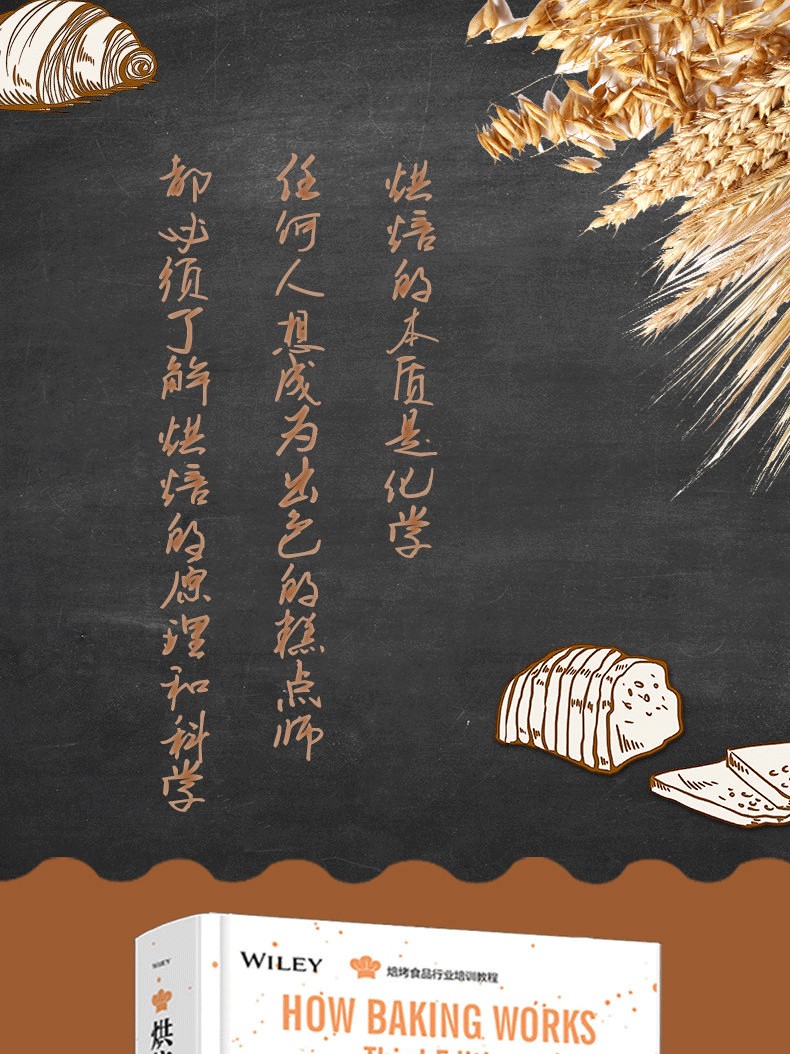 烘焙的本质是化学
任何人想成为出色的糕点师
都必须了解烘焙的原理和科学
WILEY
WILEY
焙烤食品行业培训教程
HOW BAKING WORKS
烘